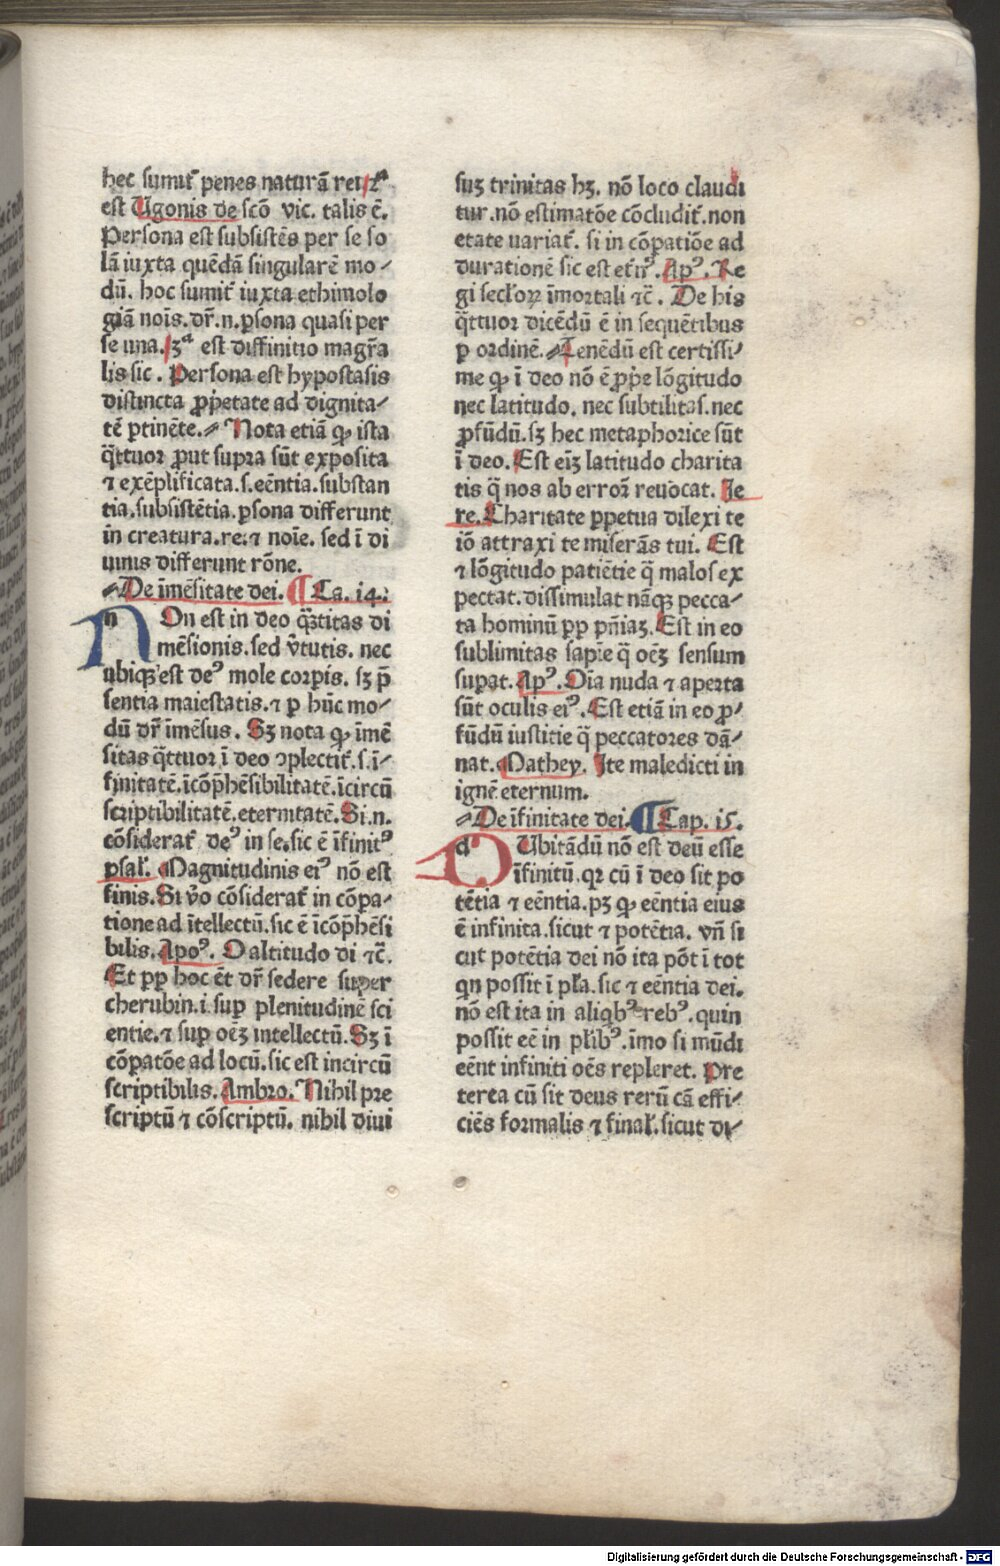 hec sumit᷒ penes naturā rei.2ª
est Ugonis de scō vic. talis ē.
Persona est subsistēs per se so
lā iuxta quēdā singularē mo⸗
dū. hoc sumit᷒ iuxta ethimolo
giā nois. dr̄.n.ꝑsona quasi per
se una.3ª est diffinitio magr̄a
lis sic. Persona est hypostasis
distincta ꝓp̄etate ad dignita⸗
tē ꝑtinēte.⸗ Nota etiā ꝙ ista
q̄ttuor ꝓut supra sūt exposita
⁊ exēplificata.s.eēntia.substan
tia.subsistētia.ꝑsona differunt
in creatura.re.⁊ noīe. sed ī di
uinis differunt rōne.
⸗De īmēsitate dei. ¶ Ca. 14.
nOn est in deo q̄titas di
mēsionis.sed v̄tutis. nec
ubiqꝫ est deꝰ mole corꝑis. sꝫ p̄
sentia maiestatis.⁊ ꝑ hūc mo⸗
dū dr̄ īmēsus. Sꝫ nota ꝙ īmē
sitas q̄ttuor ī deo ꝯplectit᷒.s.ī⸗
finitatē.īcōp̄hēsibilitatē.īcircū
scriptibilitatē.eternitatē. Si.n.
cōsiderat᷒ deꝰ in se.sic ē īfinitꝰ
psal᷒. Magnitudinis eiꝰ nō est
finis. Si v̊o cōsiderat᷒ in cōpa⸗
tione ad ītellectū.sic ē īcōp̄hēsi
bilis. Apoꝰ. O altitudo di ⁊c̄.
Et ꝓp hoc ēt dr̄ sedere super
cherubin.i.suꝑ plenitudinē sci
entie.⁊ suꝑ oēꝫ intellectū. Sꝫ ī
cōpatōe ad locū.sic est incircū
scriptibilis. Ambro. Nihil pre
scriptū ⁊ cōscriptū. nihil diui
suꝫ trinitas hꝫ. nō loco claudi
tur.nō estimatōe cōcludit᷒.non
etate uariat᷒. si in cōpatiōe ad
durationē sic est et̄nꝰ. Apꝰ. Re
gi secl'oꝝ īmortali ⁊c̄. De his
q̄ttuor dicēdū ē in sequētibus
ꝑ ordinē.⸗Tenēdū est certissi⸗
me ꝙ ī deo nō ē ꝓp̄e lōgitudo
nec latitudo. nec subtilitas.nec
ꝓfūdū.sꝫ hec metaphorice sūt
ī deo. Est eīꝫ latitudo charita
tis q̄ nos ab erroꝛ̄ reuocat. Je
re. Charitate ꝑpetua dilexi te
iō attraxi te miserās tui. Est
⁊ lōgitudo patiētie q̄ malos ex
pectat.dissimulat nāqꝫ pecca⸗
ta hominū ꝓp pn̄iaꝫ. Est in eo
sublimitas sapīe q̄ oēꝫ sensum
suꝑat. Apꝰ. Oīa nuda ⁊ aperta
sūt oculis eiꝰ. Est etiā in eo ꝓ⸗
fūdū iustitie q̄ peccatores dā⸗
nat. Mathey. Ite maledicti in
ignē eternum.
⸗De īfinitate dei. ¶ Cap. 15.
dUbitādū nō est deū esse
īfinitū.qꝛ cū ī deo sit po
tētia ⁊ eēntia.pꝫ ꝙ eēntia eius
ē infinita.sicut ⁊ potētia. vn̄ si
cut potētia dei nō ita pōt ī tot
qn possit ī pl̄a.sic ⁊ eēntia dei.
nō est ita in aliqbꝰ rebꝰ.quin
possit eē in pl̄ibꝰ.īmo si mūdi
eēnt infiniti oēs repleret. Pre
terea cū sit deus rerū cā effi⸗
ciēs formalis ⁊ final᷒.sicut di⸗
Digitalisierung gefördert durch die Deutsche Forschungsgemeinschaft - DFG